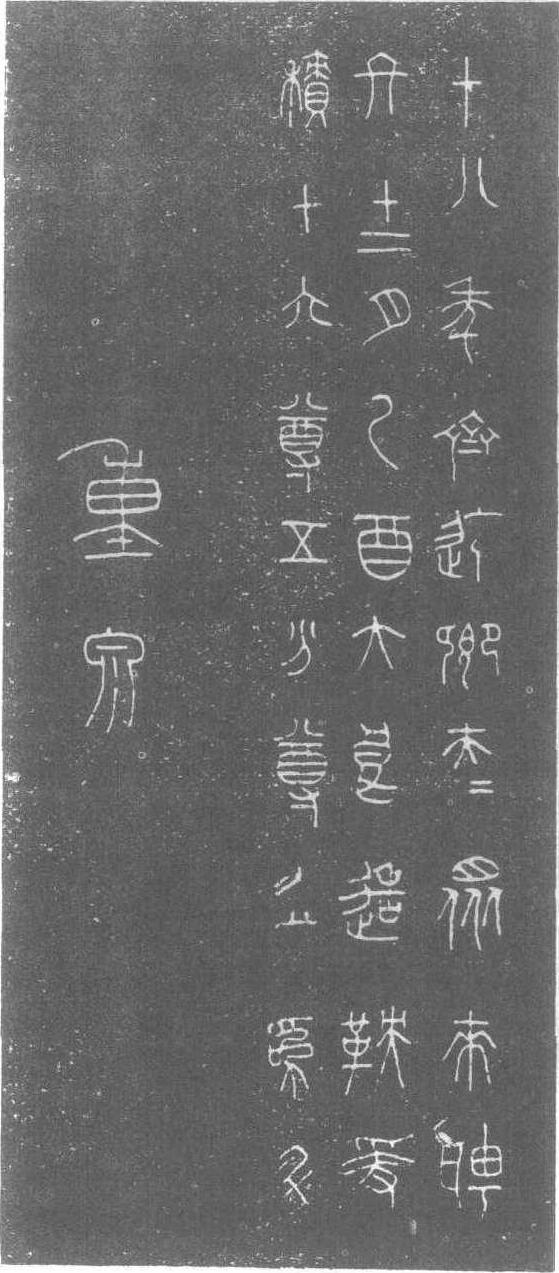 十八年齊遣卿大夫眾來聘
冬十二月乙酉大良造鞅爰
積十六尊五分尊壹為升
重泉